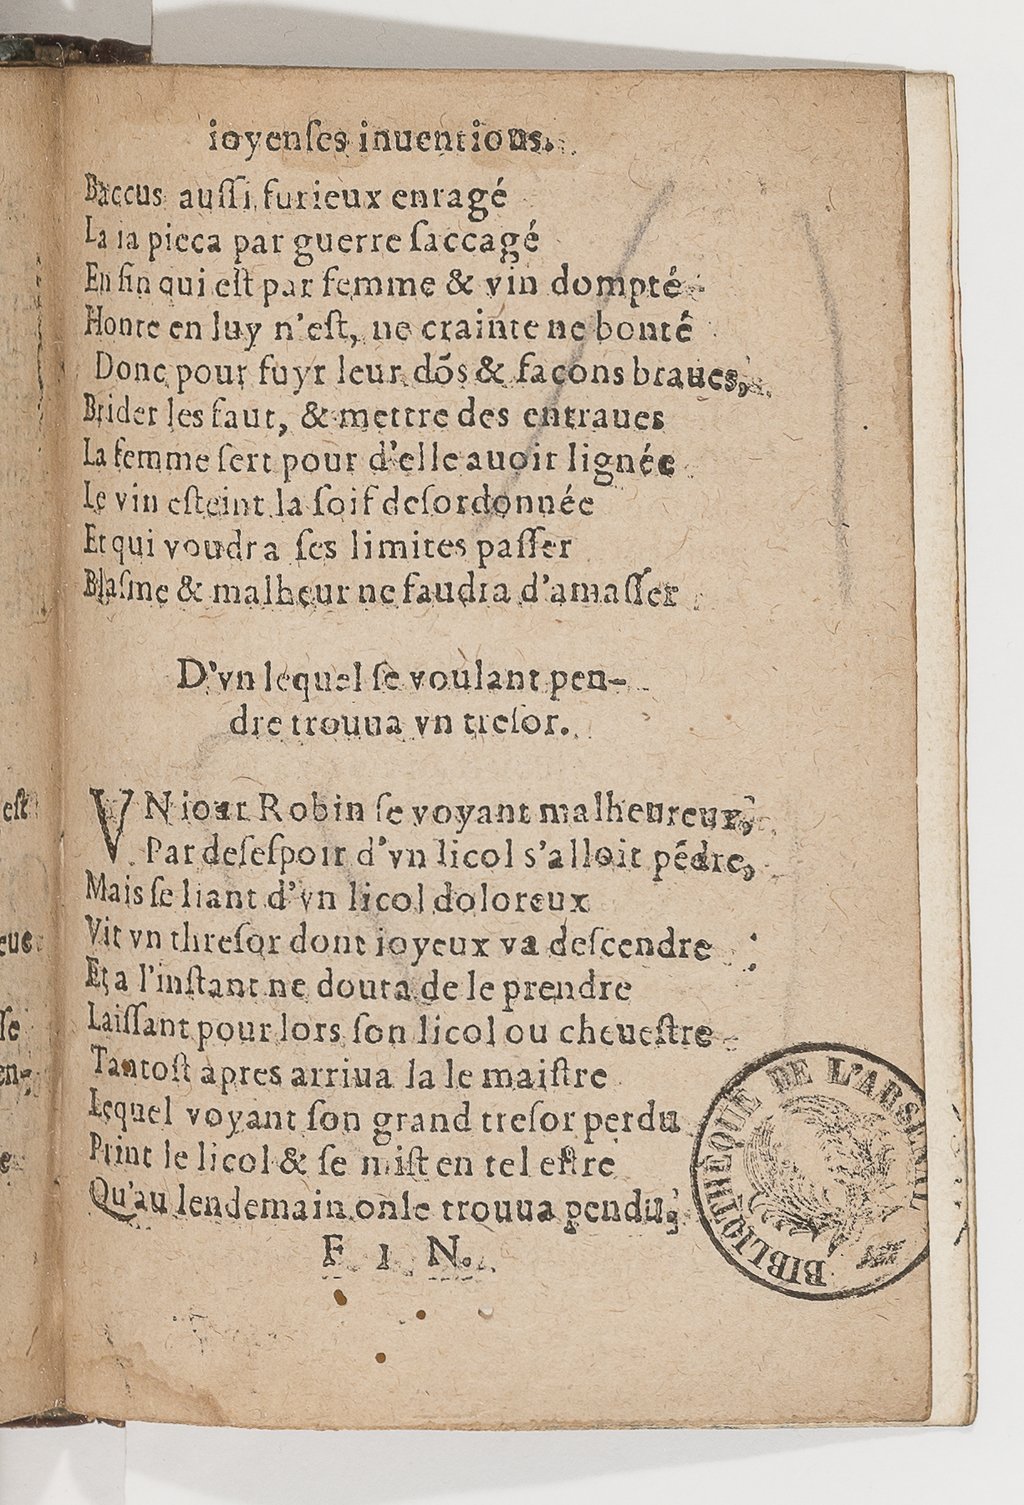 ioyenſes inuentions.
Baccus auſſi furieux enragé
La ia pieca par guerre ſaccagé
En fin qui eſt par femme & vin dompté
Honte en luy n'eſt, ne crainte ne bonté
Donc pour fuyr leur dõs & façons braues,
Brider les faut, & mettre des entraues
La femme ſert pour d'elle auoir lignée
Le vin eſteint la ſoif deſordonnée
Et qui voudra ſes limites paſſer
Blaſme & malheur ne faudra d'amaſſer
D'vn lequel ſe voulant pen-
dre trouua vn treſor.
VN iour Robin ſe voyant malheureux,
Par deſeſpoir d'vn licol s'alloit pẽdre,
Mais ſe liant d'vn licol doloreux
Vit vn threſor dont ioyeux va deſcendre
Et a l'inſtant ne douta de le prendre
Laiſſant pour lors ſon licol ou cheueſtre
Tantoſt apres arriua la le maiſtre
Lequel voyant ſon grand treſor perdu
Print le licol & ſe miſt en tel eſtre
Qu'au lendemain on le trouua pendu.
F I N.
BIBLIOTHEQUE DE L'ARSENAL
eſt
eue
ſe
en-